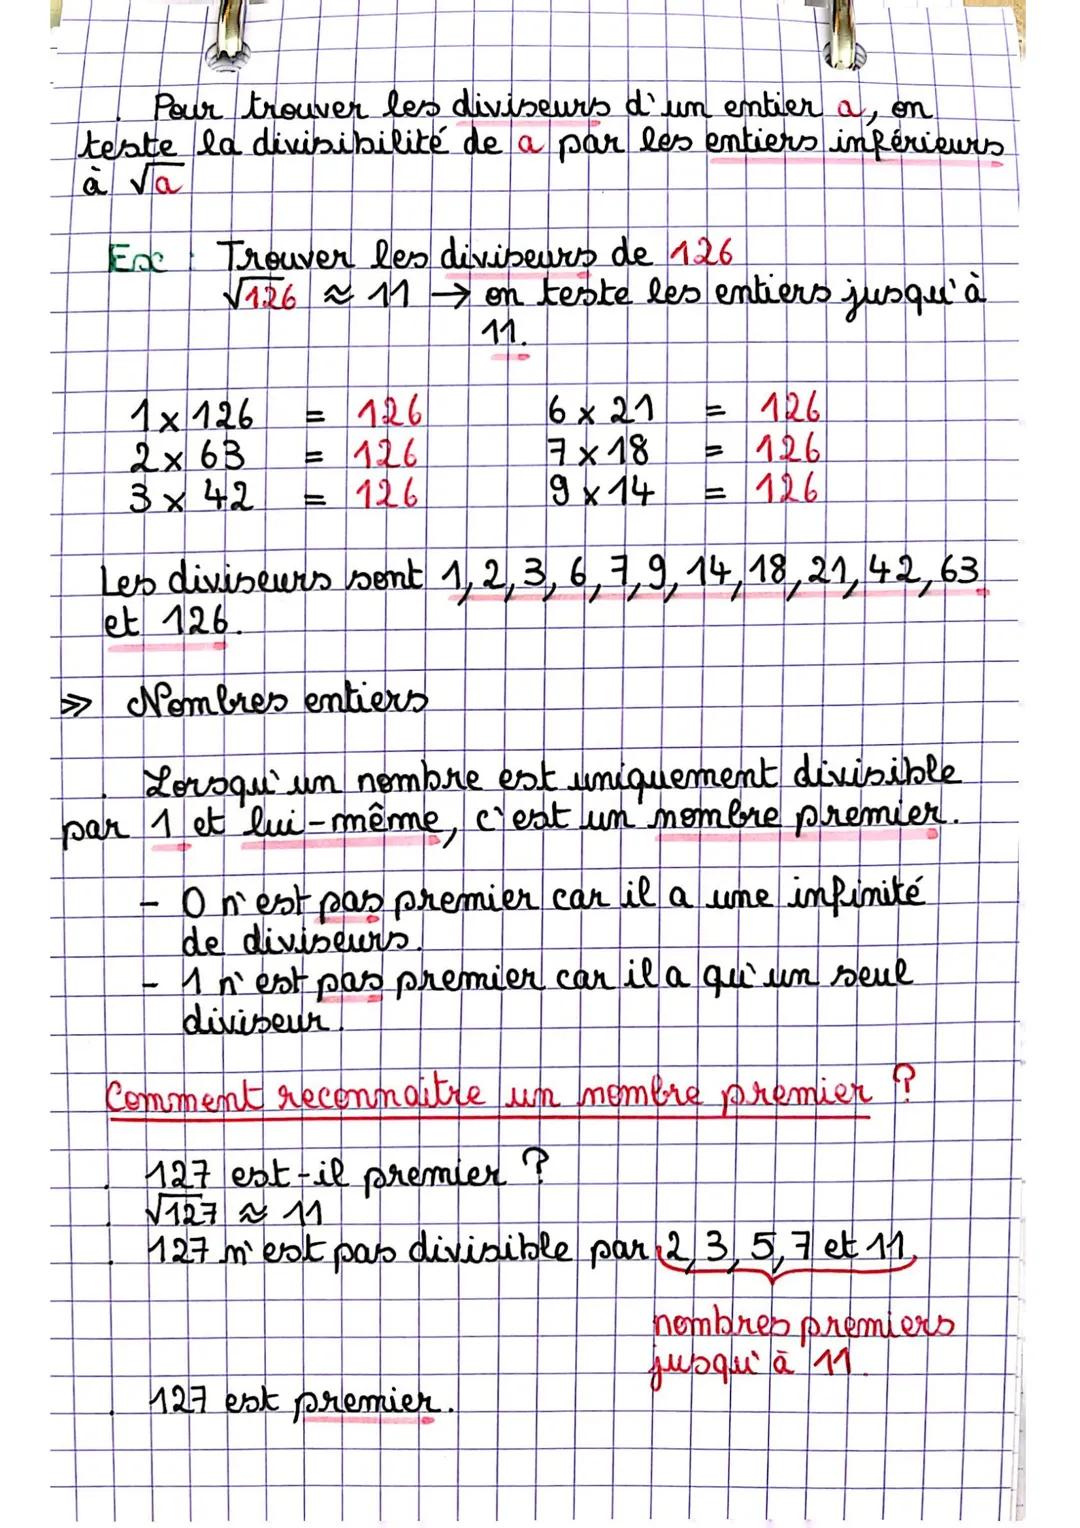 . Pour trouver les diviseurs d'un entier a, on
teste la divisibilité de a par les entiers inférieurs
à √a
Ex : Trouver les diviseurs de 126
√126 ≈ 11 → on teste les entiers jusqu'à
11.
1 x 126 = 126 6 x 21 = 126
2 x 63 = 126 7 x 18 = 126
3 x 42 = 126 9 x 14 = 126
Les diviseurs sont 1, 2, 3, 6, 7, 9, 14, 18, 21, 42, 63
et 126.
>> Nombres entiers
. Lorsqu'un nombre est uniquement divisible
par 1 et lui-même, c'est un nombre premier.
- 0 n'est pas premier car il a une infinité
de diviseurs.
- 1 n'est pas premier car il a qu'un seul
diviseur.
Comment reconnaitre un nombre premier ?
. 127 est-il premier ?
. √127 ≈ 11
. 127 n'est pas divisible par 2, 3, 5, 7 et 11.
nombres premiers
jusqu'à 11.
. 127 est premier.